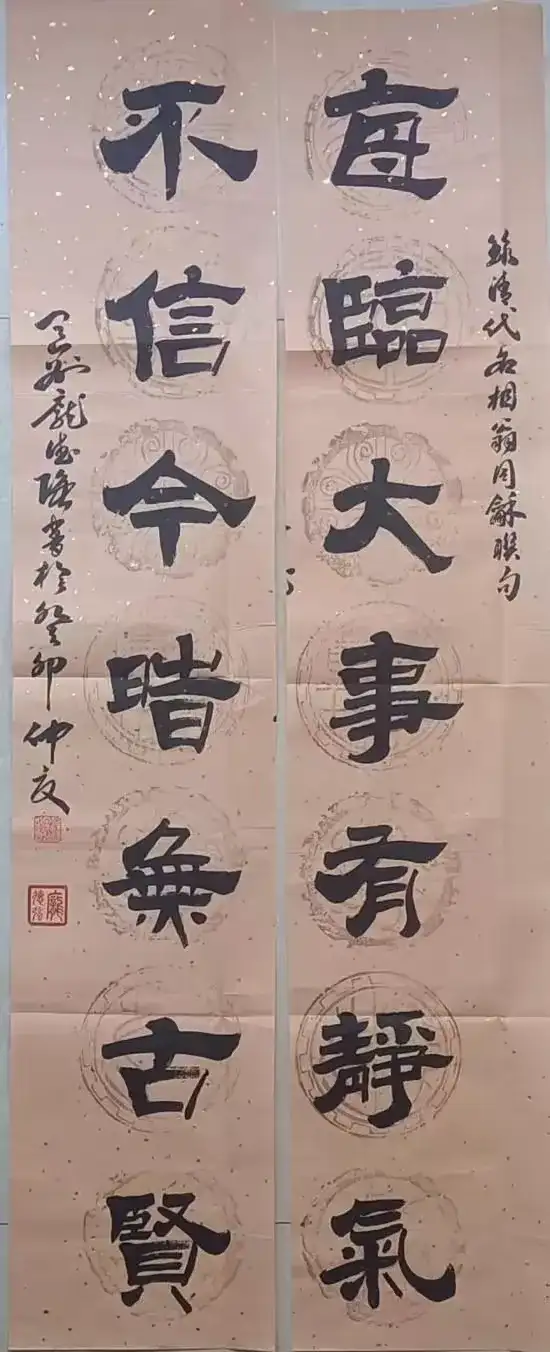 錄清代名相翁同龢聯句
每臨大事有靜氣
不信今時無古賢
龐德書於癸卯仲夏